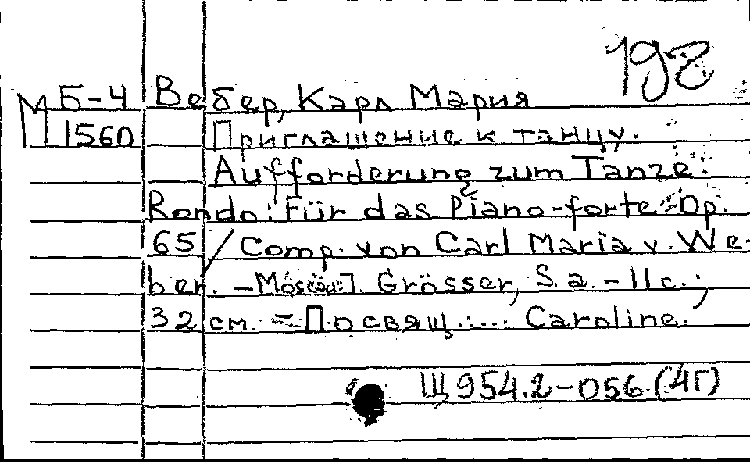 198
М Б-4 Вебер, Карл Мария
1560 Приглашение к танцу.
Aufforderung zum Tanze.
Rondo: Für das Piano-forte: Op.
65 / Comp. von Carl Maria v. We-
ber. – Moscou: J. Grosser, S. a. – 11 с.;
32 см. – Посвящ.:... Caroline.
Щ954.2-056.(4Г)